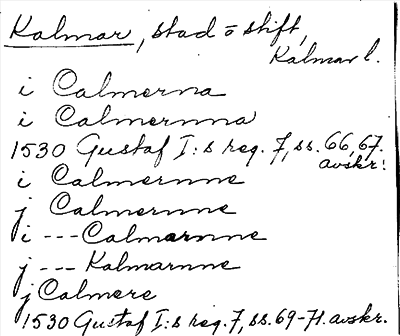 Kalmar, stad o stift,
Kalmar l.
i Calmerna
i Calmernna
1530 Gustaf I:s reg. 7, ss. 66, 67.
avskr.
i Calmernne
j Calmernne
i --- Calmarnne
j --- Kalmarnne
j Calmere
1530 Gustaf I:s reg. 7, ss. 69-71. avskr.